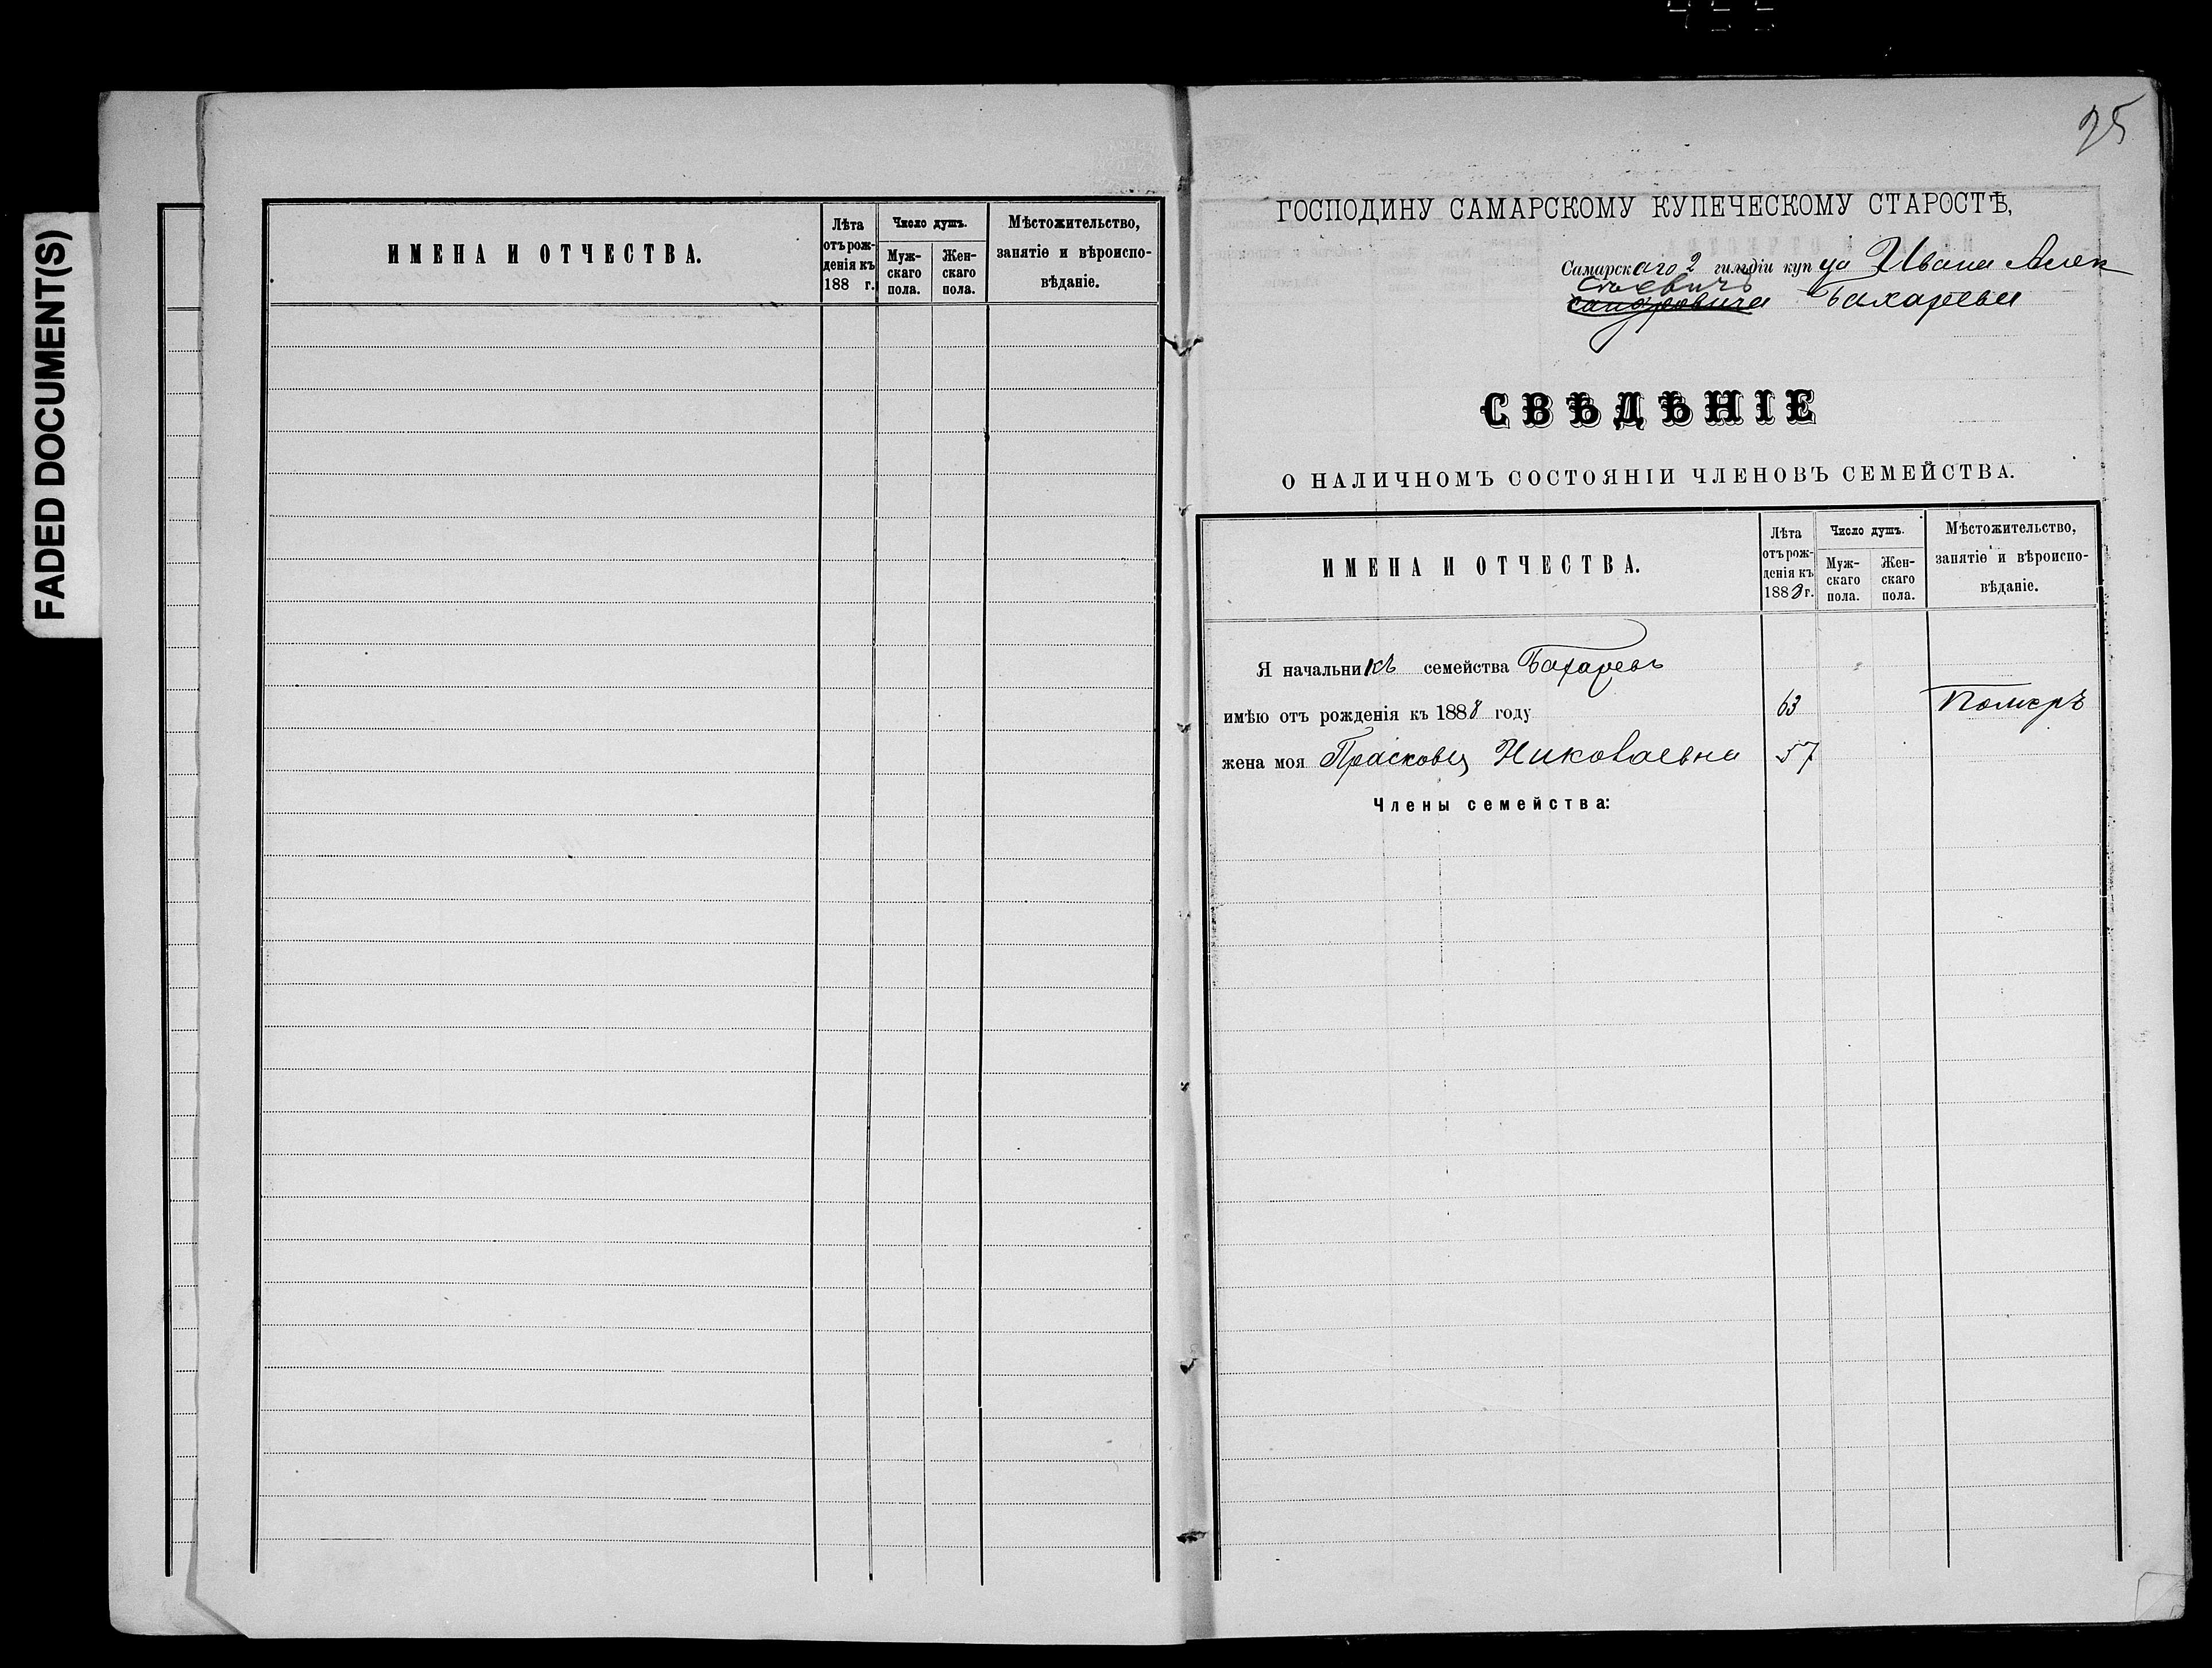 FADED DOCUMENT(S)
ИМЕНА И ОТЧЕСТВА.
Лѣта
отъ рож-
денія къ
188 г.
Число душъ.
Муж-
скаго
пола.
Жен-
скаго
пола.
Мѣстожительство,
занятіе и вѣроиспо-
вѣданіе.
ГОСПОДИНУ САМАРСКОМУ КУПЕЧЕСКОМУ СТАРОСТѢ,
Самарскаго 2 гильдіи купца Ивана Алек
сѣевичъ
сандровича Бахарева
СВѢДѢНІЕ
О НАЛИЧНОМЪ СОСТОЯНІИ ЧЛЕНОВЪ СЕМЕЙСТВА.
ИМЕНА И ОТЧЕСТВА.
Лѣта
отъ рож-
денія къ
1888 г.
Число душъ.
Муж-
скаго
пола.
Жен-
скаго
пола.
Мѣстожительство,
занятіе и вѣроиспо-
вѣданіе.
Я начальникъ семейства Бахаревъ
имѣю отъ рожденія къ 1888 году 63 Померъ
жена моя Прасковья Николаевна 57
Члены семейства: